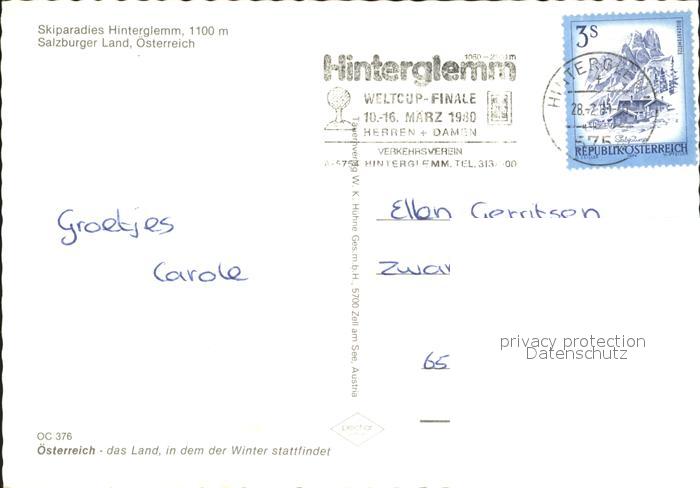 Skiparadies Hinterglemm, 1100 m
Salzburger Land, Österreich
Hinterglemm
WELTCUP-FINALE
10.-16. MÄRZ 1980
HERREN + DAMEN
VERKEHRSVEREIN
A-5754 HINTERGLEMM, TEL. 313
3S
REPUBLIK ÖSTERREICH
Groetjes
Carole
Ellen Gerritsen
Zwar
65
privacy protection
Datenschutz
Tauernverlag W. K. Hühne Ges.m.b.H., 5700 Zell am See, Austria
OC 376
Österreich - das Land, in dem der Winter stattfindet